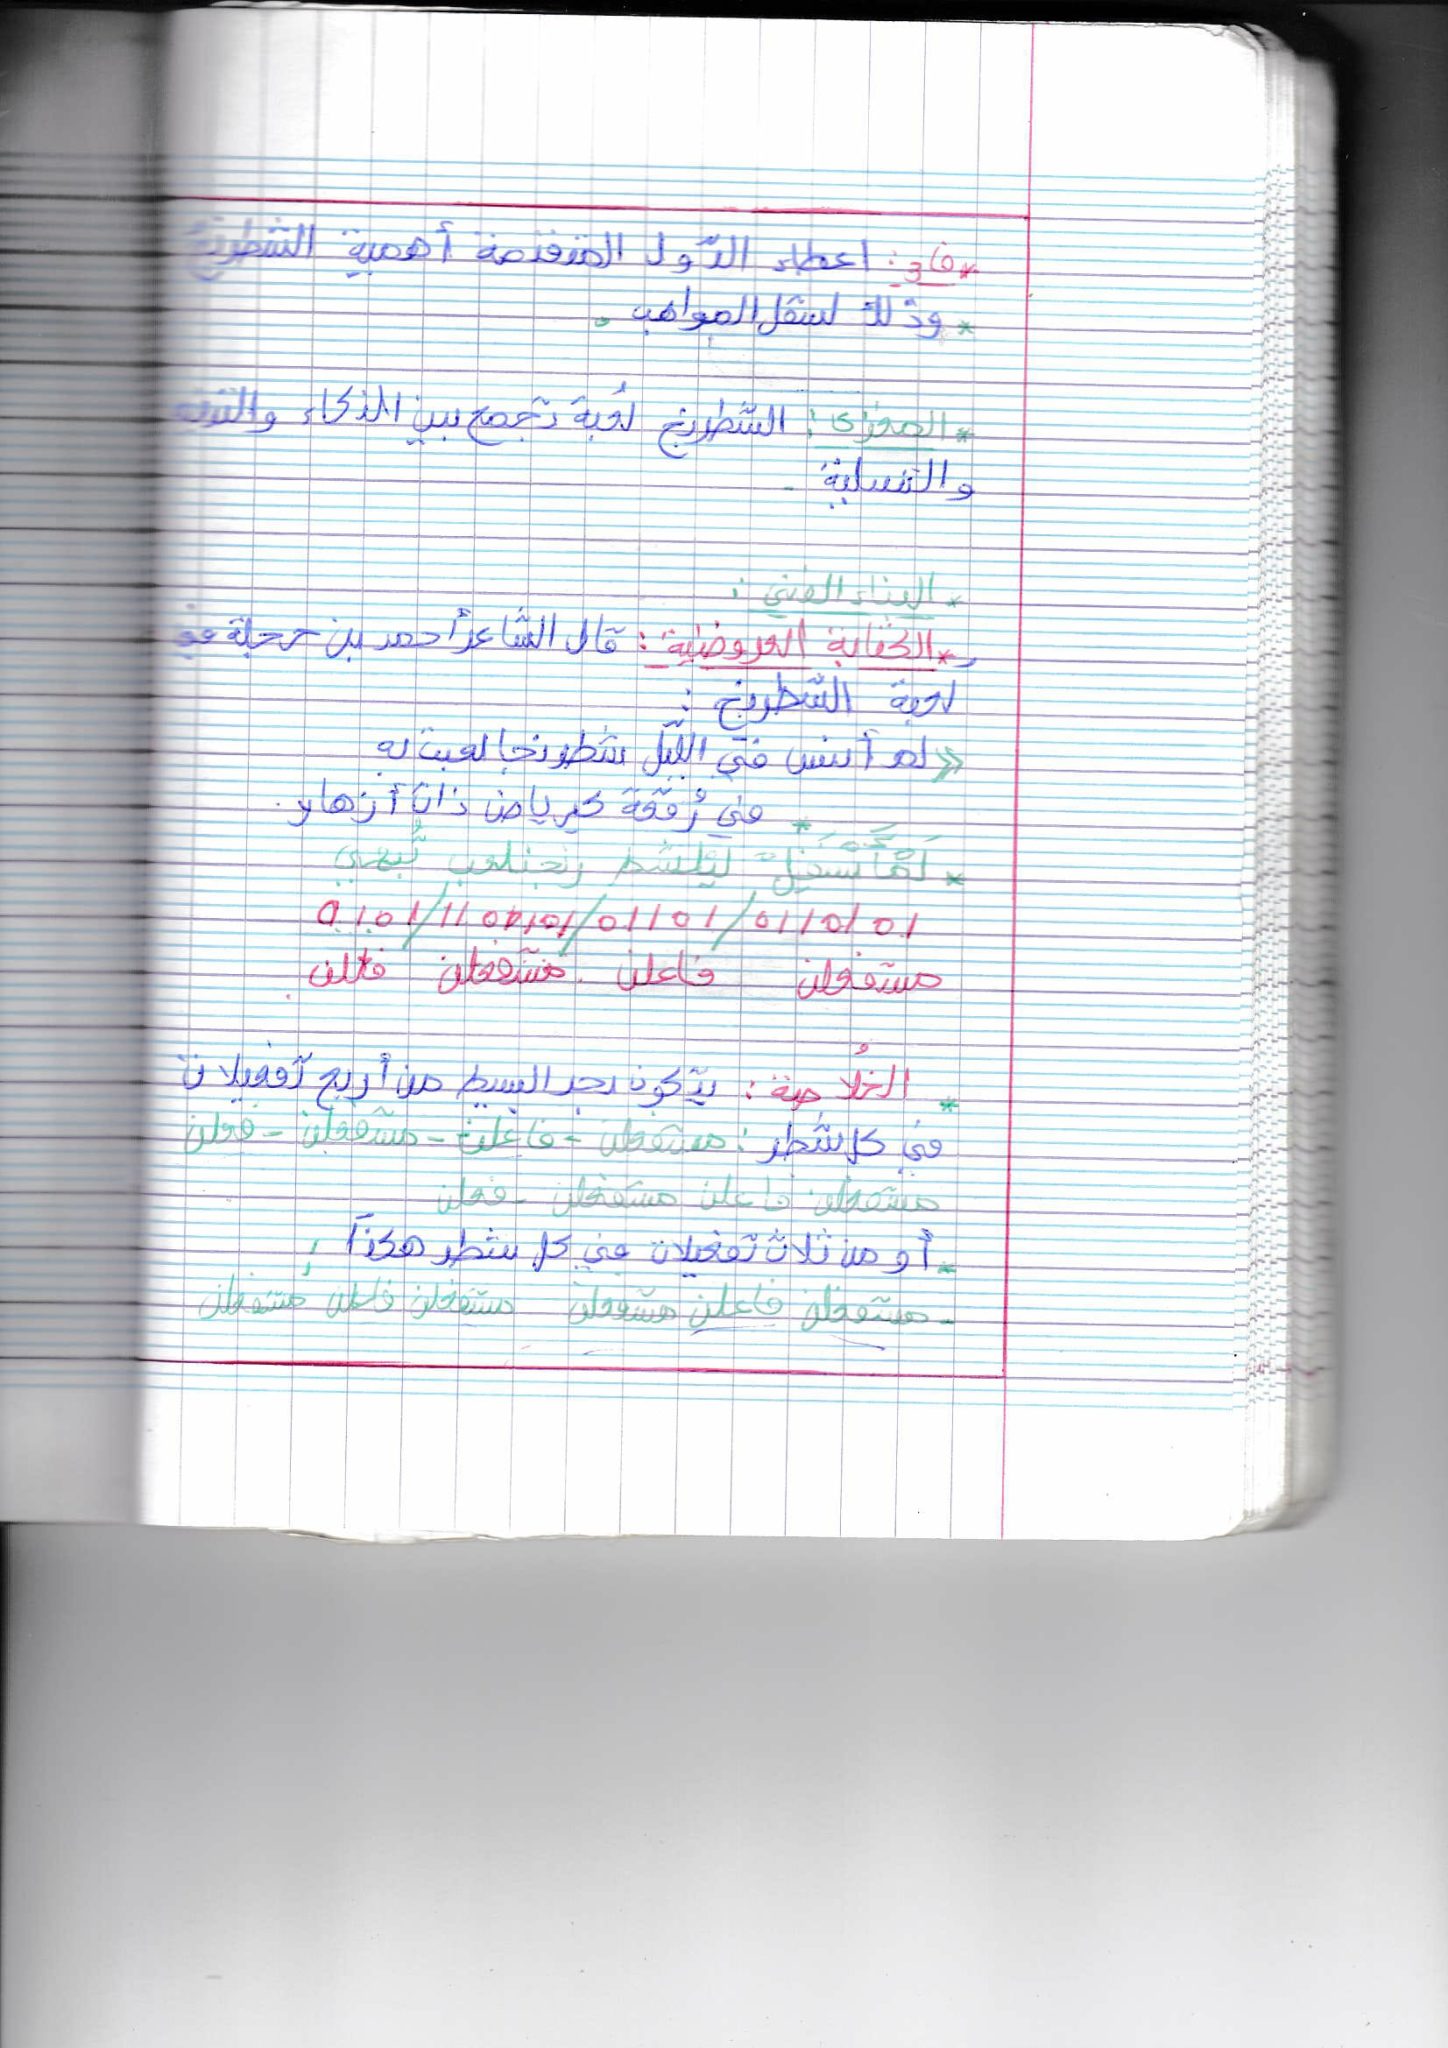 * ف 3: اعطاء الدّول المتقدمة أهمية الشطرنج
* وذلك لسقل المواهب.
* المغزى: الشّطرنج لُعبة تجمع بين الذكاء والترفيه
والتسلية.
* البناء الفني:
* الكتابة العروضية: قال الشاعر أحمد بن حجلة في
لعبة الشّطرنج:
« لم أنس في اللّيل شطرنجا لعبت به
* في رُفقة كرياض ذات أزهار.
* لَمْأَنْسَفِلْ لَيْلشط رنجنلعب تُبهي
/0/0//0/ /0//0/ /0/0//0/ ///0
مستفعلن فاعلن مستفعلن فعلن.
* الخُلاصة: يتكون بحر البسيط من أربع تفعيلات
في كل شطر: مستفعلن - فاعلن - مستفعلن - فعلن
مستفعلن فاعلن مستفعلن - فعلن
- أو من ثلاث تفعيلات في كل شطر هكذا:
- مستفعلن فاعلن مستفعلن مستفعلن فاعلن مستفعلن